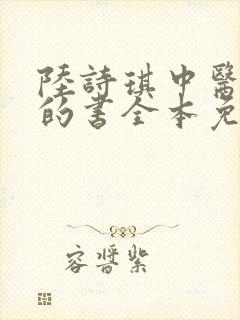 陸詩琪中醫
的書全本免
容晉紫